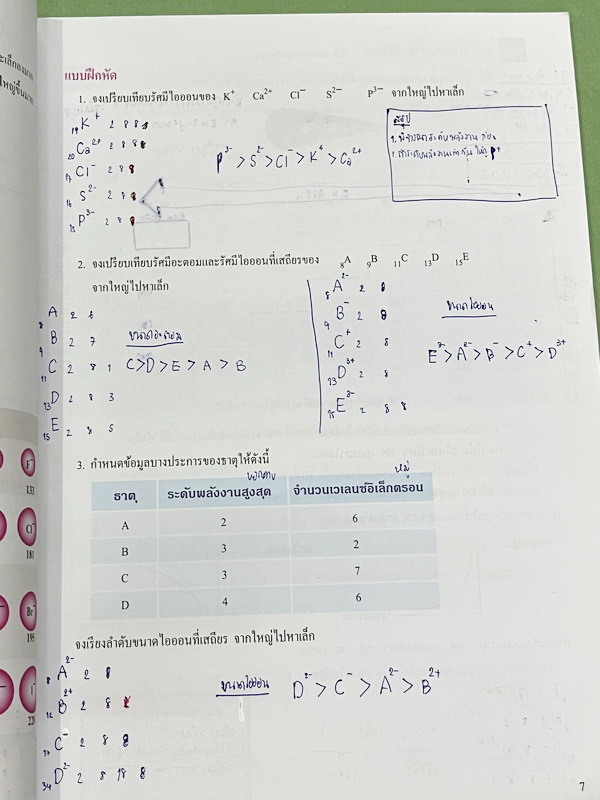 แบบฝึกหัด
1. จงเปรียบเทียบรัศมีไอออนของ K⁺ Ca²⁺ Cl⁻ S²⁻ P³⁻ จากใหญ่ไปหาเล็ก
สรุป
₁₉K⁺ 2 8 8
₂₀Ca²⁺ 2 8 8
₁₇Cl⁻ 2 8 8
₁₆S²⁻ 2 8 8
₁₅P³⁻ 2 8 8
P³⁻ > S²⁻ > Cl⁻ > K⁺ > Ca²⁺
2. จงเปรียบเทียบรัศมีอะตอมและรัศมีไอออนที่เสถียรของ ₈A ₉B ₁₁C ₁₃D ₁₅E
จากใหญ่ไปหาเล็ก
₈A 2 6
₉B 2 7
₁₁C 2 8 1
₁₃D 2 8 3
₁₅E 2 8 5
ขนาดอะตอม
C > D > E > A > B
₈A²⁻ 2 8
₉B⁻ 2 8
₁₁C⁺ 2 8
₁₃D³⁺ 2 8
₁₅E³⁻ 2 8 8
ขนาดไอออน
E³⁻ > A²⁻ > B⁻ > C⁺ > D³⁺
3. กำหนดข้อมูลบางประการของธาตุให้ดังนี้
บอกคาบ หมู่
ธาตุ ระดับพลังงานสูงสุด จำนวนเวเลนซ์อิเล็กตรอน
A 2 6
B 3 2
C 3 7
D 4 6
จงเรียงลำดับขนาดไอออนที่เสถียร จากใหญ่ไปหาเล็ก
₈A²⁻ 2 8
₁₂B²⁺ 2 8
₁₇C⁻ 2 8 8
₃₄D²⁻ 2 8 18 8
ขนาดไอออน
D²⁻ > C⁻ > A²⁻ > B²⁺
F⁻
133
Cl⁻
181
Br⁻
195
I⁻
220
7